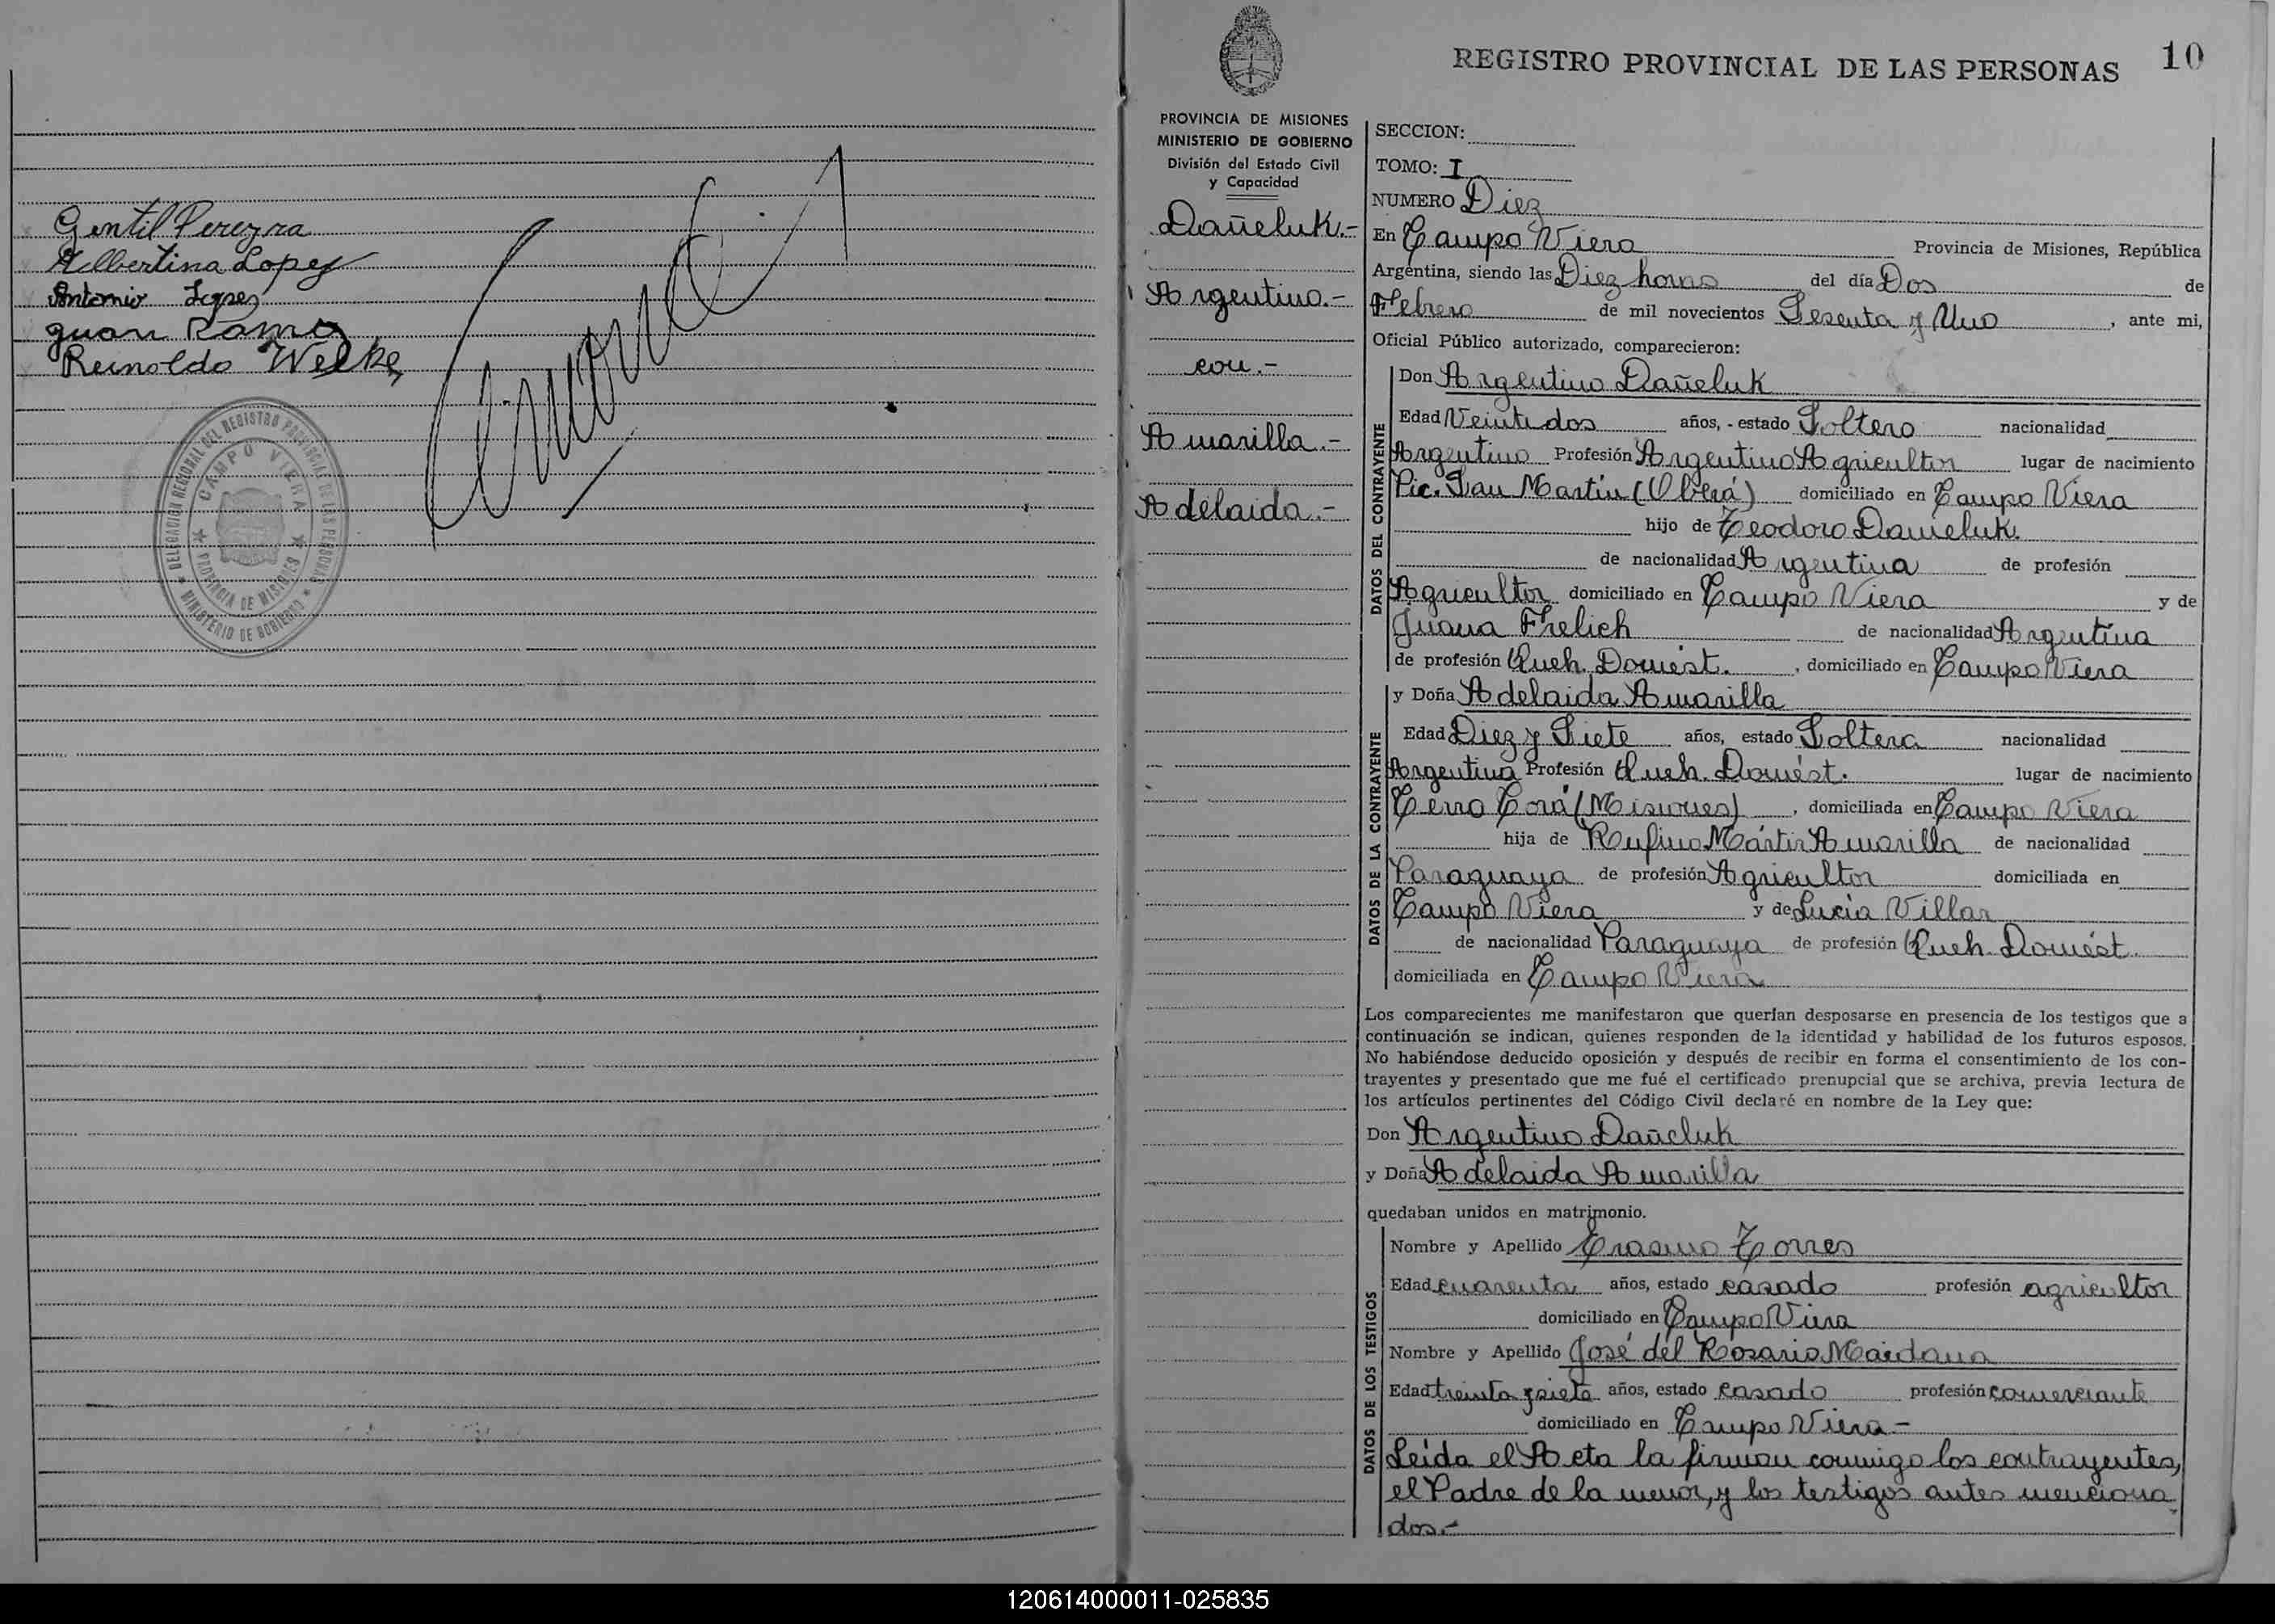 Gentil Pereyra
Albertina Lopez
Antonio Lopez
Juan Ramo
Reinoldo Welke
DELEGACION REGIONAL DEL REGISTRO PROVINCIAL DE LAS PERSONAS
CAMPO VIERA
PROVINCIA DE MISIONES
MINISTERIO DE GOBIERNO
REGISTRO PROVINCIAL DE LAS PERSONAS 10
PROVINCIA DE MISIONES
MINISTERIO DE GOBIERNO
División del Estado Civil
y Capacidad
Dañeluk.-
Argentino.-
con.-
Amarilla.-
Adelaida.-
SECCION:
TOMO: I
NUMERO Diez
En Campo Viera Provincia de Misiones, República
Argentina, siendo las Diez horas del día Dos de
Febrero de mil novecientos Sesenta y Uno, ante mi,
Oficial Público autorizado, comparecieron:
DATOS DEL CONTRAYENTE
Don Argentino Dañeluk
Edad Veintidos años, - estado Soltero nacionalidad
Argentino Profesión Argentino Agricultor lugar de nacimiento
Pic. San Martín (Oberá) domiciliado en Campo Viera
hijo de Teodoro Danieluk.
de nacionalidad Argentina de profesión
Agricultor domiciliado en Campo Viera y de
Juana Frelich de nacionalidad Argentina
de profesión Queh. Domést. , domiciliado en Campo Viera
DATOS DE LA CONTRAYENTE
y Doña Adelaida Amarilla
Edad Diez y Siete años, estado Soltera nacionalidad
Argentina Profesión Queh. Domést. lugar de nacimiento
Cerro Corá (Misiones) , domiciliada en Campo Viera
hija de Rufino Mártir Amarilla de nacionalidad
Paraguaya de profesión Agricultor domiciliada en
Campo Viera y de Lucía Villar
de nacionalidad Paraguaya de profesión Queh. Domést.
domiciliada en Campo Viera
Los comparecientes me manifestaron que querían desposarse en presencia de los testigos que a
continuación se indican, quienes responden de la identidad y habilidad de los futuros esposos.
No habiéndose deducido oposición y después de recibir en forma el consentimiento de los con-
trayentes y presentado que me fué el certificado prenupcial que se archiva, previa lectura de
los artículos pertinentes del Código Civil declaré en nombre de la Ley que:
Don Argentino Dañeluk
y Doña Adelaida Amarilla
quedaban unidos en matrimonio.
DATOS DE LOS TESTIGOS
Nombre y Apellido Erasmo Torres
Edad cuarenta años, estado casado profesión agricultor
domiciliado en Campo Viera
Nombre y Apellido José del Rosario Maidana
Edad treinta y siete años, estado casado profesión comerciante
domiciliado en Campo Viera -
Leida el Acta la firman conmigo los contrayentes,
el Padre de la menor, y los testigos antes menciona
dos.-
120614000011-025835